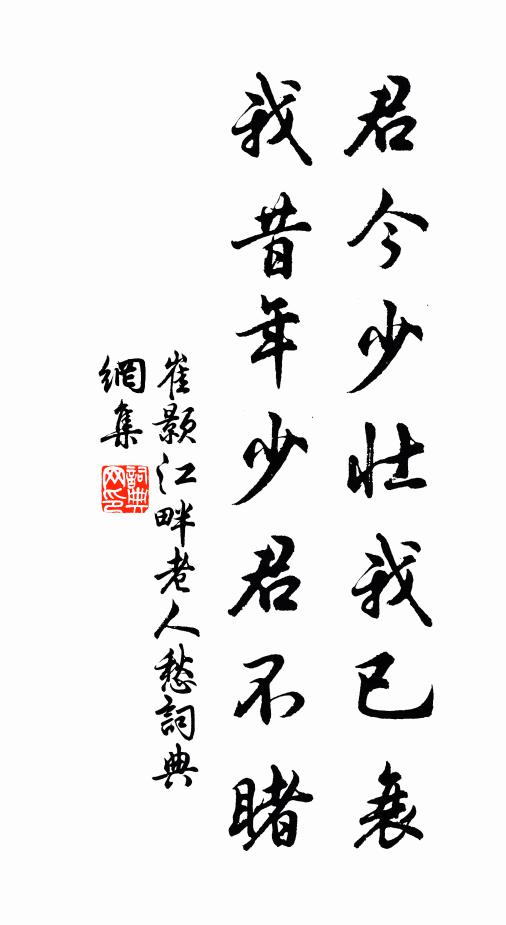 君今少壯我已衰
我昔年少君不睹
崔顥江畔老人愁詞典
網集
詞典網印